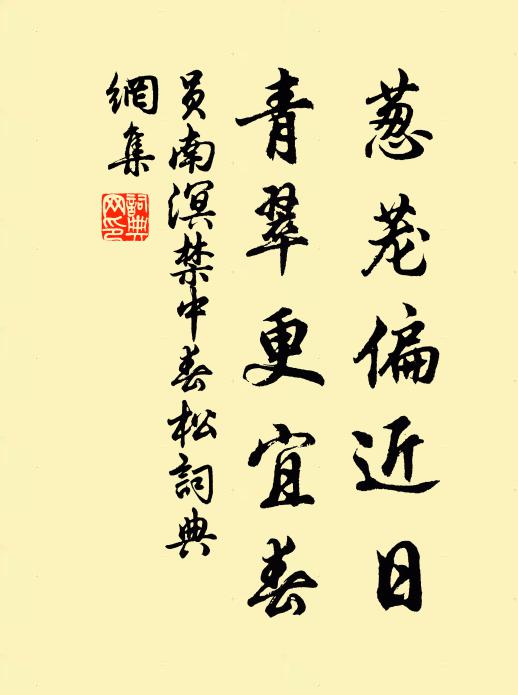 葱茏偏近日
青翠更宜春
員南溟禁中春松詞典
網集
詞典
网印